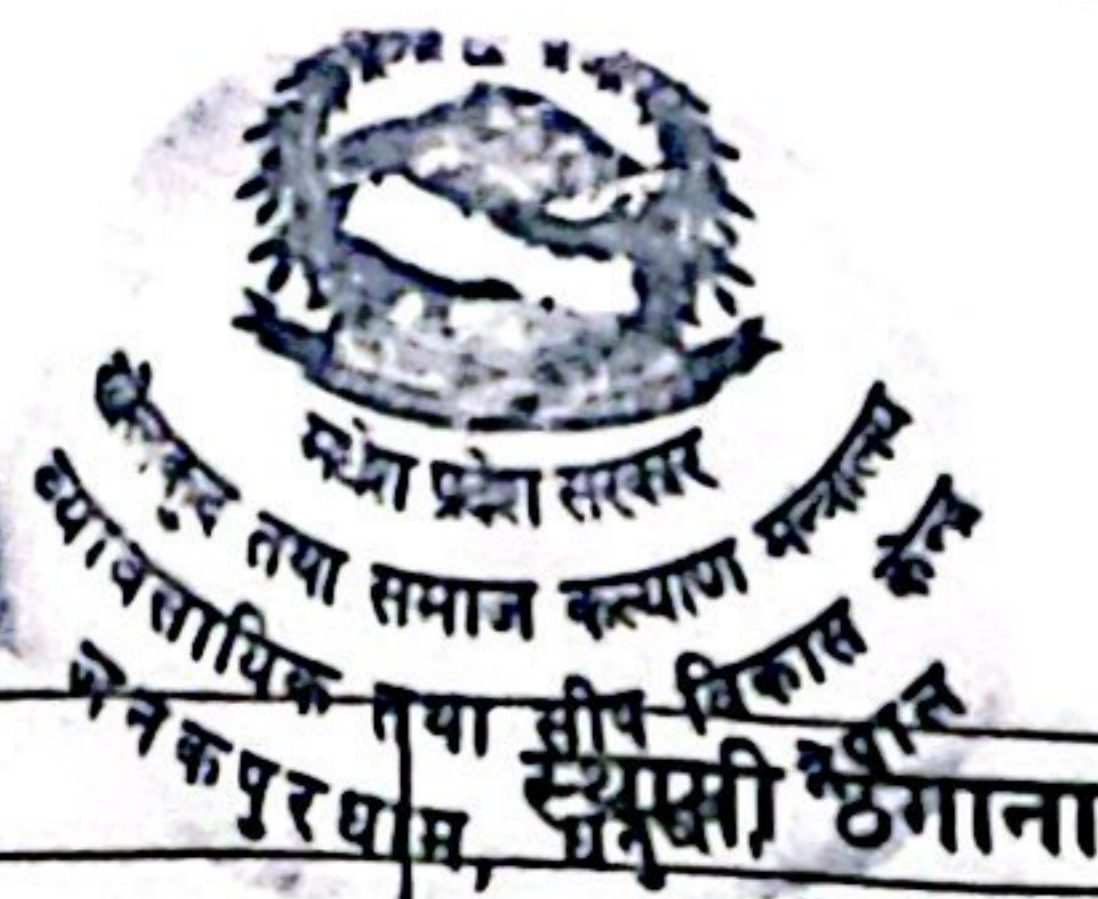 मधेश प्रदेश सरकार
खेलकुद तथा समाज कल्याण मन्त्रालय
व्यावसायिक तथा सीप विकास केन्द्र
जनकपुरधाम, धनुषा, नेपाल
स्थायी ठेगाना